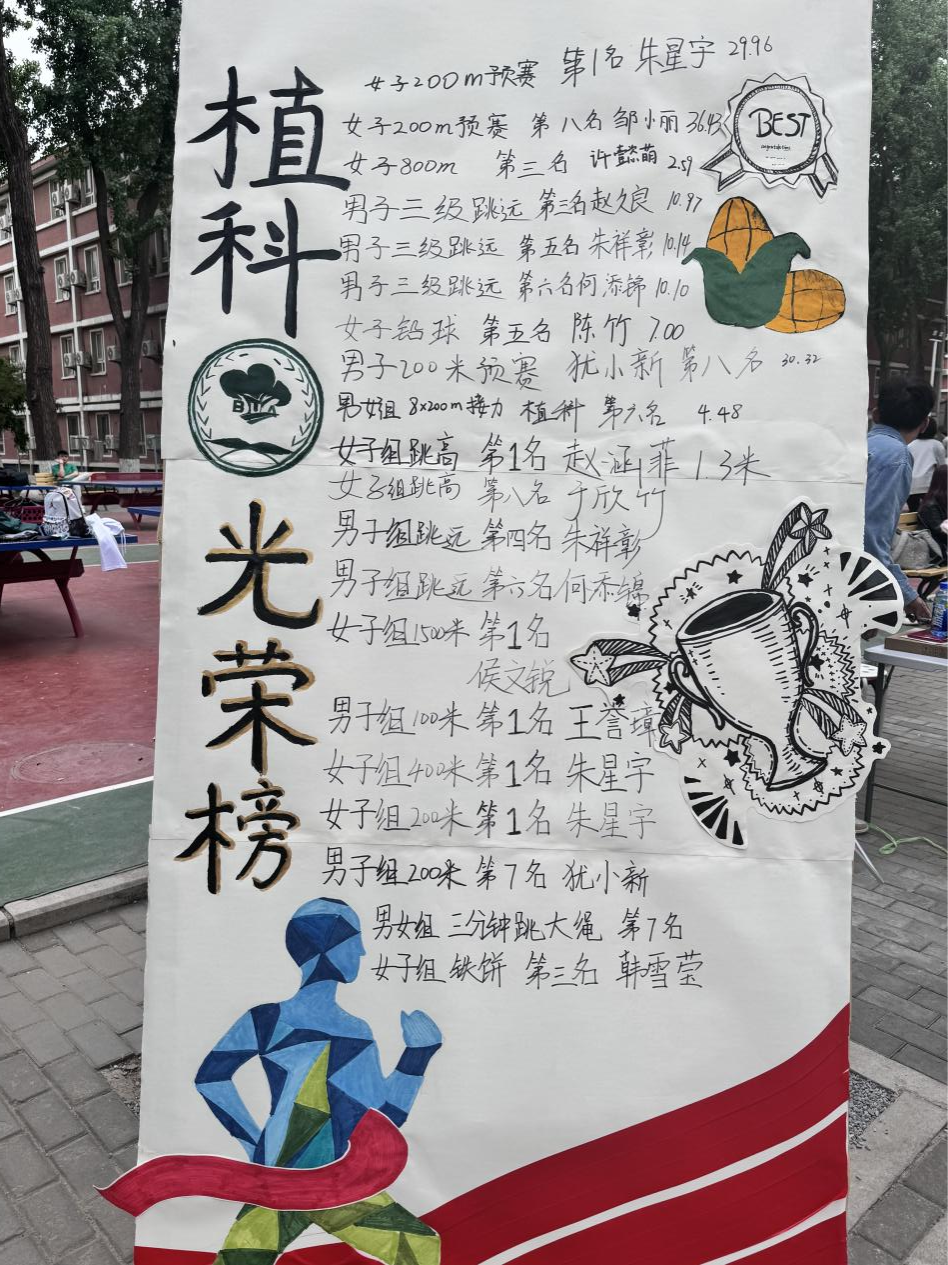 植科
光荣榜
女子200m预赛 第1名 朱星宇 29.96
女子200m预赛 第八名 邹小丽 36.43
女子800m 第三名 许懿萌 2.59
男子三级跳远 第三名赵久良 10.97
男子三级跳远 第五名 朱祥彰 10.14
男子三级跳远 第六名何添锦 10.10
女子铅球 第五名 陈竹 7.00
男子200米预赛 犹小新 第八名 30.32
男女组 8x200m接力 植科 第六名 4.48
女子组跳高 第1名 赵涵菲 1.3米
女子组跳高 第八名 于欣竹
男子组跳远 第四名 朱祥彰
男子组跳远 第六名何添锦
女子组1500米 第1名
侯文锐
男子组100米 第1名 王誉璋
女子组400米 第1名 朱星宇
女子组200米 第1名 朱星宇
男子组200米 第7名 犹小新
男女组 三分钟跳大绳 第7名
女子组 铁饼 第三名 韩雪莹
BEST
BUA